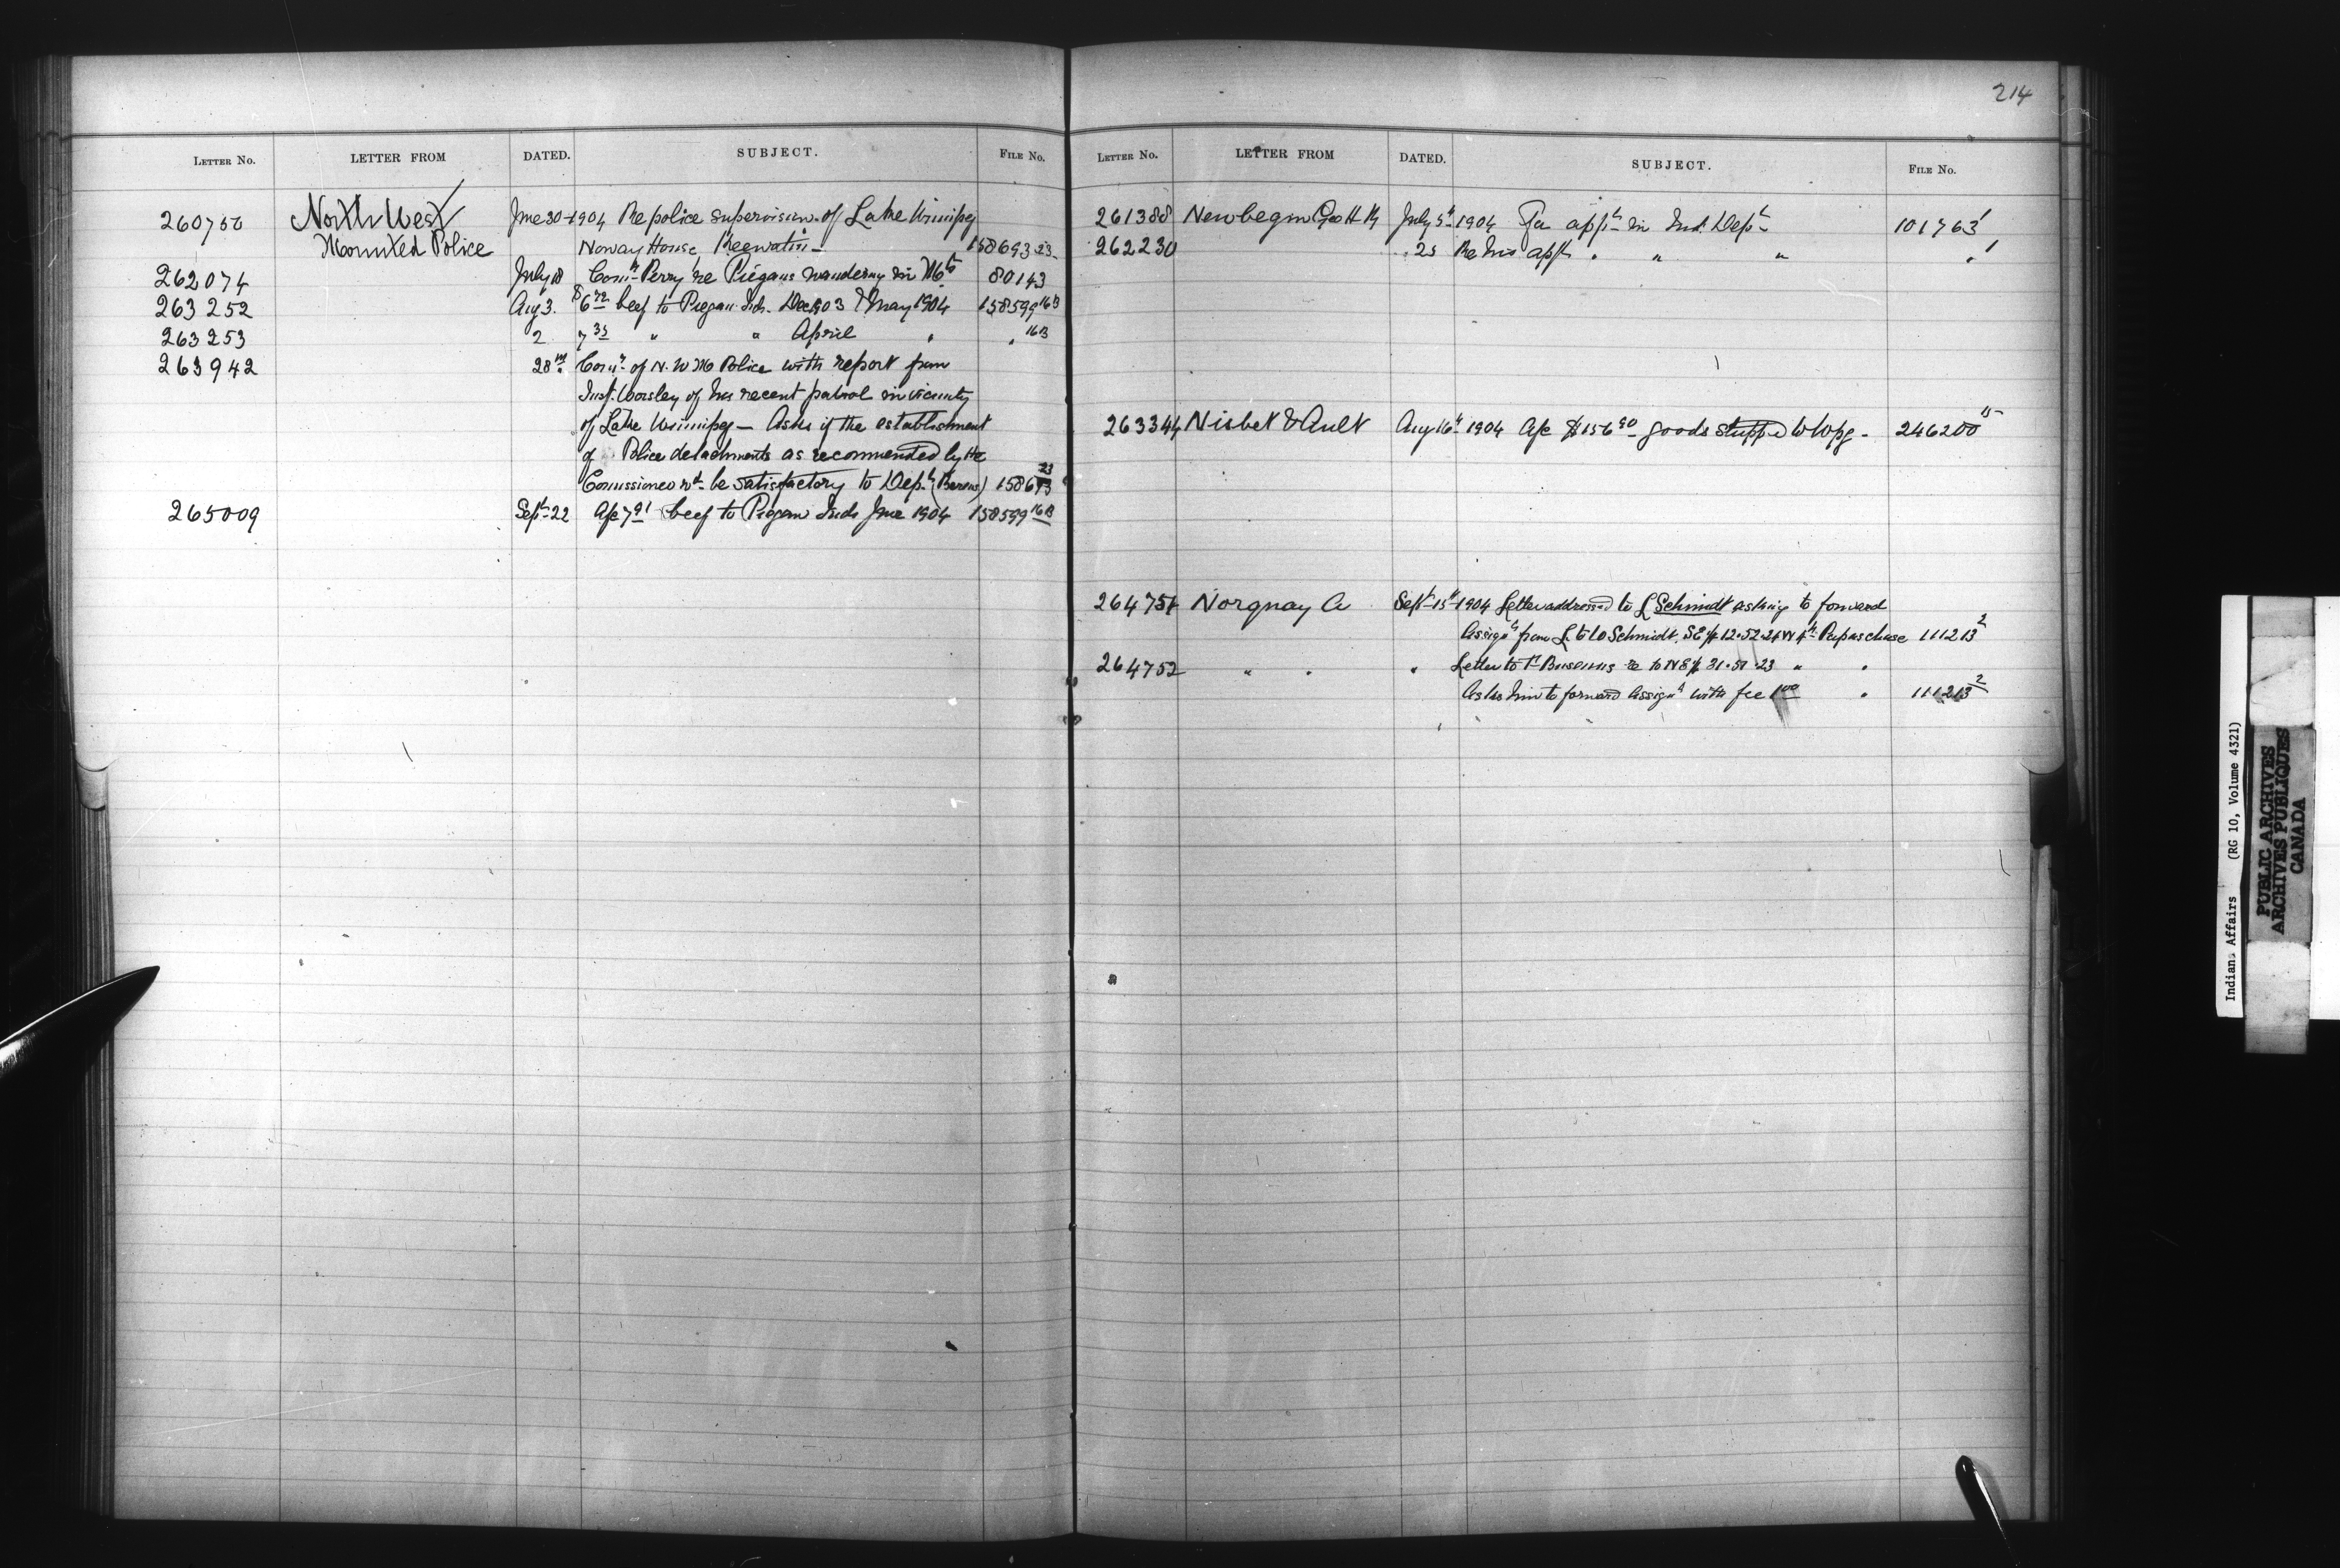 214
LETTER NO. LETTER FROM DATED. SUBJECT. FILE NO.
260750 North West June 30 1904 Re police supervision of Lake Winnipeg
Mounted Police Norway House, Keewatin 158693 23
262074 July 18 Comr Perry re Piegans wandering in Mts 80143
263252 Aug 3. beef to Piegan Inds. Dec 1903 & May 1904 158599 16B
263253 2 7 35 " " April " " 16B
263942 28 Comr of N. W M Police with report from
Insp. Worsley of his recent patrol in vicinity
of Lake Winnipeg — Asks if the establishment
of Police detachments as recommended by the
Comissioner wd be satisfactory to Dept (Berens) 158693 23
265009 Sept 22 A/c 7 91 beef to Piegan Inds June 1904 158599 16B
LETTER NO. LETTER FROM DATED. SUBJECT. FILE NO.
261388 Newbegin Geo H July 5th 1904 appt in Ind. Dept 101763 1
262230 " 25 Re his appt " " " " 1
263344 Nisbet & Ault Aug 16th 1904 A/c $156 90 goods shipped to Wpg. 246200 15
264751 Norquay A Sept 15th 1904 Letter addressed to L Schmidt asking to forward
Assignt from L. to Schmidt. SE 1/4 12-52-24 W 4th 111213 2
264752 " " " Letter to re to NE 1/4 31-51-23 " "
Asks him to forward assignt with fee 1 00 " 111213 2
Indian Affairs (RG 10, Volume 4321)
PUBLIC ARCHIVES
ARCHIVES PUBLIQUES
CANADA